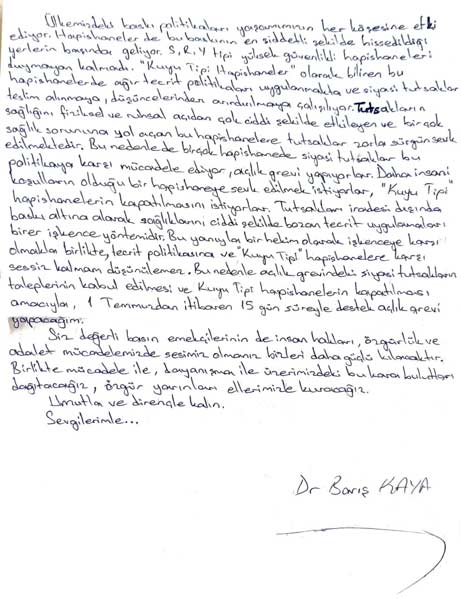 Ülkemizdeki baskı politikaları yaşamımızın her köşesine etki
ediyor. Hapishaneler de bu baskının en şiddetli şekilde hissedildiği
yerlerin başında geliyor. S, R, Y tipi yüksek güvenlikli hapishaneleri
duymayan kalmadı. "Kuyu Tipi Hapishaneler" olarak bilinen bu
hapishanelerde ağır tecrit politikaları uygulanmakta ve siyasi tutsaklar
teslim alınmaya, düşüncelerinden arındırılmaya çalışılıyor. Tutsakların
sağlığını fiziksel ve ruhsal açıdan çok ciddi şekilde etkileyen ve bir çok
sağlık sorununa yol açan bu hapishanelere tutsaklar zorla sürgün sevk
edilmektedir. Bu nedenle de birçok hapishanede siyasi tutsaklar bu
politikaya karşı mücadele ediyor, açlık grevi yapıyorlar. Daha insani
koşulların olduğu bir hapishaneye sevk edilmek istiyorlar, "Kuyu Tipi"
hapishanelerin kapatılmasını istiyorlar. Tutsakları iradesi dışında
baskı altına alarak sağlıklarını ciddi şekilde bozan tecrit uygulamaları
birer işkence yöntemidir. Bu yanıyla bir hekim olarak işkenceye karşı
olmakla birlikte, tecrit politikasına ve "Kuyu Tipi" hapishanelere karşı
sessiz kalmam düşünülemez. Bu nedenle açlık grevindeki siyasi tutsakların
taleplerinin kabul edilmesi ve Kuyu Tipi hapishanelerin kapatılması
amacıyla, 1 Temmuzdan itibaren 15 gün süreyle destek açlık grevi
yapacağım.
Siz değerli basın emekçilerinin de insan hakları, özgürlük ve
adalet mücadelemizde sesimiz olmanız bizleri daha güçlü kılacaktır.
Birlikte mücadele ile, dayanışma ile üzerimizdeki bu kara bulutları
dağıtacağız, özgür yarınları ellerimizle kuracağız.
Umutla ve dirençle kalın.
Sevgilerimle...
Dr Barış KAYA